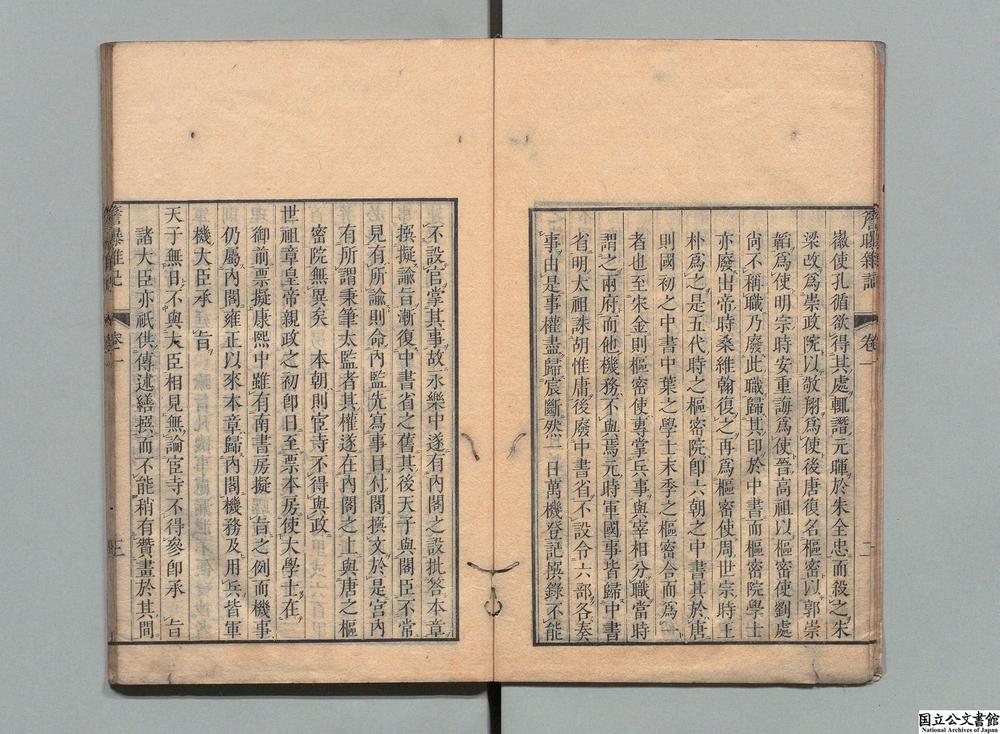 簷曝雜記 卷一 二
徽使孔循欲得其處輒譖元暉於朱全忠而殺之朱
梁改為崇政院以敬翔為使後唐復名樞密以郭崇
韜為使明宗時安重誨為使晉高祖以樞密使劉處
尙不稱職乃廢此職歸其印於中書而樞密院學士
亦廢出帝時桑維翰復之再為樞密使周世宗時王
朴為之是五代時之樞密院即六朝之中書其於唐
則國初之中書中葉之學士末季之樞密合而為一
者也至宋金則樞密使專掌兵事與宰相分職當時
謂之兩府而他機務不與焉元時軍國事皆歸中書
省明太祖誅胡惟庸後廢中書省不設令六部各奏
事由是事權盡歸宸斷然一日萬機登記撰錄不能
不設官掌其事故永樂中遂有內閣之設批答本章
撰擬諭旨漸復中書省之舊其後天子與閣臣不常
見有所諭則命內監先寫事目付閣撰文於是宮內
有所謂秉筆太監者其權遂在內閣之上與唐之樞
密院無異矣 本朝則宦寺不得與政
世祖章皇帝親政之初即日至票本房使大學士在
御前票擬康熙中雖有南書房擬 旨之例而機事
仍屬內閣雍正以來本章歸內閣機務及用兵皆軍
機大臣承 旨
天子無日不與大臣相見無論宦寺不得參即承 旨
諸大臣亦祇供傳述繕撰而不能稍有贊畫於其間
簷曝雜記 卷一 三
国立公文書館
National Archives of Japan